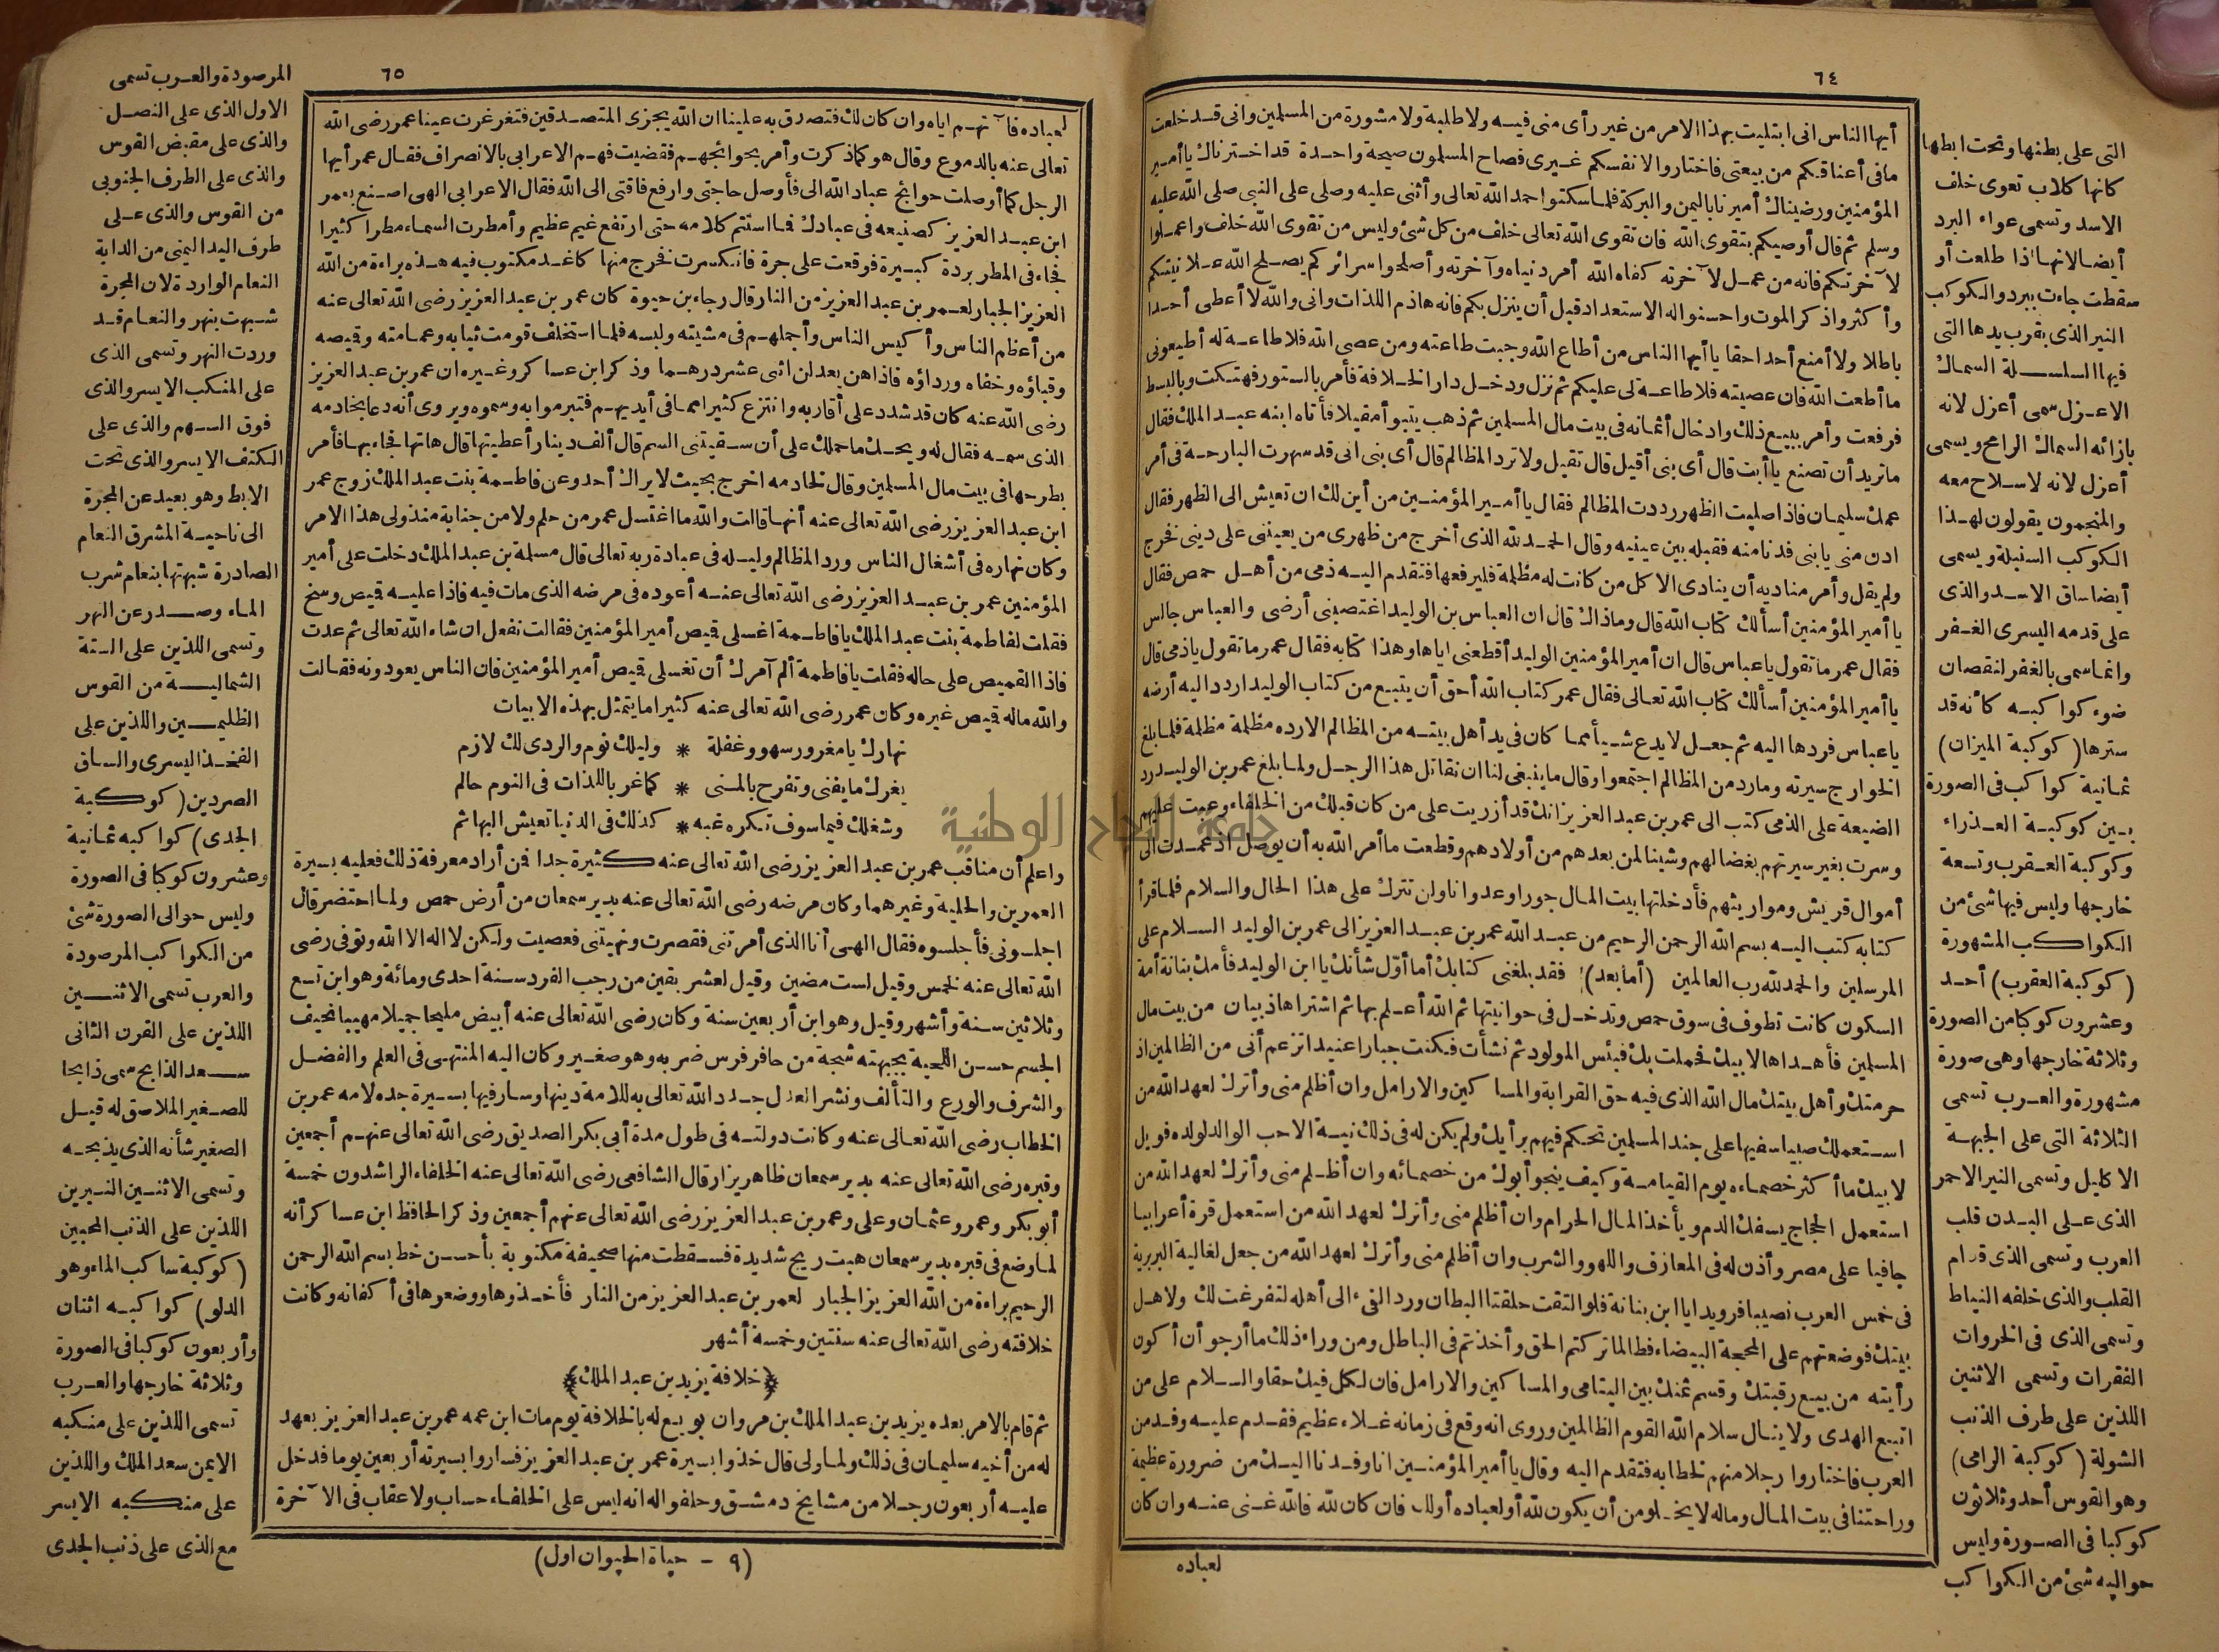 ٦٤
أيها الناس انى ابتليت بهذا الامر من غير رأى منى فيه ولا طلبة ولا مشورة من المسلمين وانى قد خلعت
مافى أعناقكم من بيعتى فاختاروا لانفسكم غيرى فصاح المسلمون صيحة واحدة قد اخترناك يا أمير
المؤمنين ورضيناك أميرنا باليمن والبركة فلما سكتوا حمد الله تعالى وأثنى عليه وصلى على النبى صلى الله عليه
وسلم ثم قال أوصيكم بتقوى الله فان تقوى الله تعالى خلف من كل شئ وليس من تقوى الله خلف واعملوا
لآخرتكم فانه من عمل لآخرته كفاه الله أمر دنياه وآخرته وأصلحوا سرائركم يصلح الله علانيتكم
وأكثروا ذكر الموت واحسنوا له الاستعداد قبل أن ينزل بكم فانه هاذم اللذات وانى والله لا أعطى أحدا
باطلا ولا أمنع أحدا حقا يا أيها الناس من أطاع الله وجبت طاعته ومن عصى الله فلا طاعة له أطيعونى
ما أطعت الله فان عصيته فلا طاعة لى عليكم ثم نزل ودخل دار الخلافة فأمر بالستور فهتكت وبالبسط
فرفعت وأمر ببيع ذلك وادخال أثمانه فى بيت مال المسلمين ثم ذهب يتبوأ مقيلا فأتاه ابنه عبد الملك فقال
ماتريد أن تصنع يا أبت قال أى بنى أقيل قال تقيل ولا ترد المظالم قال أى بنى انى قد سهرت البارحة فى أمر
عمك سليمان فاذا صليت الظهر رددت المظالم فقال يا أمير المؤمنين من أين لك ان تعيش الى الظهر فقال
ادن منى يابنى فدنا منه فقبله بين عينيه وقال الحمد لله الذى أخرج من ظهرى من يعيننى على دينى فخرج
ولم يقل وأمر مناديه أن ينادى الا كل من كانت له مظلمة فليرفعها فتقدم اليه ذمى من أهل حمص فقال
يا أمير المؤمنين أسألك كتاب الله قال وماذاك قال ان العباس بن الوليد اغتصبنى أرضى والعباس جالس
فقال عمر ما تقول ياعباس قال ان أمير المؤمنين الوليد أقطعنى اياها وهذا كتابه فقال عمر ما تقول ياذمى قال
يا أمير المؤمنين أسألك كتاب الله تعالى فقال عمر كتاب الله أحق أن يتبع من كتاب الوليد اردد اليه أرضه
ياعباس فردها اليه ثم جعل لا يدع شيأ مما كان فى يد أهل بيته من المظالم الا رده مظلمة مظلمة فلما بلغ
الخوارج سيرته ومارد من المظالم اجتمعوا وقال ما ينبغى لنا ان نقاتل هذا الرجل ولما بلغ عمر بن الوليد رد
الضيعة على الذمى كتب الى عمر بن عبد العزيز انك قد أزريت على من كان قبلك من الخلفاء وعبت عليهم
وسرت بغير سيرتهم بغضا لهم وشينا لمن بعدهم من أولادهم وقطعت ما أمر الله به أن يوصل اذ عمدت الى
أموال قريش ومواريثهم فأدخلتها بيت المال جورا وعدوانا ولن تترك على هذا الحال والسلام فلما قرأ
كتابه كتب اليه بسم الله الرحمن الرحيم من عبد الله عمر بن عبد العزيز الى عمر بن الوليد السلام على
المرسلين والحمد لله رب العالمين (أما بعد) فقد بلغنى كتابك أما أوّل شأنك يا ابن الوليد فأمك بنانة أمة
السكون كانت تطوف فى سوق حمص وتدخل فى حوانيتها ثم الله أعلم بها ثم اشتراها ذبيان من بيت مال
المسلمين فأهداها لابيك فحملت بك فبئس المولود ثم نشأت فكنت جبارا عنيدا تزعم أنى من الظالمين اذ
حرمتك وأهل بيتك مال الله الذى فيه حق القرابة والمساكين والارامل وان أظلم منى وأترك لعهد الله من
استعملك صبيا سفيها على جند المسلمين تحكم فيهم برأيك ولم يكن له فى ذلك نية الا حب الوالد لولده فويل
لابيك ما أكثر خصماءه يوم القيامة وكيف ينجو أبوك من خصمائه وان أظلم منى وأترك لعهد الله من
استعمل الحجاج يسفك الدم ويأخذ المال الحرام وان أظلم منى وأترك لعهد الله من استعمل قرة أعرابيا
جافيا على مصر وأذن له فى المعازف واللهو والشرب وان أظلم منى وأترك لعهد الله من جعل لغالية البربرية
فى خمس العرب نصيبا فرويدا يا ابن بنانة فلو التقت حلقتا البطان ورد الفىء الى أهله لتفرغت لك ولاهل
بيتك فوضعتهم على المحجة البيضاء فطالما تركتم الحق وأخذتم فى الباطل ومن وراء ذلك ما أرجو أن أكون
رأيته من بيع رقبتك وقسم ثمنك بين اليتامى والمساكين والارامل فان لكل فيك حقا والسلام على من
اتبع الهدى ولا ينال سلام الله القوم الظالمين وروى انه وقع فى زمانه غلاء عظيم فقدم عليه وفد من
العرب فاختاروا رجلا منهم لخطابه فتقدم اليه وقال يا أمير المؤمنين انا وفدنا اليك من ضرورة عظيمة
وراحتنا فى بيت المال وماله لا يخلو من أن يكون لله أو لعباده أولك فان كان لله فالله غنى عنه وان كان
لعباده
التى على بطنها وتحت ابطها
كانها كلاب تعوى خلف
الاسد وتسمى عواء البرد
أيضا لانها اذا طلعت أو
سقطت جاءت ببرد والكوكب
النير الذى بقرب يدها التى
فيها السلسلة السماك
الاعزل سمى أعزل لانه
بازائه السماك الرامح ويسمى
أعزل لانه لاسلاح معه
والمنجمون يقولون لهذا
الكوكب السنبلة ويسمى
أيضا ساق الاسد والذى
على قدمه اليسرى الغفر
وانما سمى بالغفر لنقصان
ضوء كواكبه كأنه قد
سترها (كوكبة الميزان)
ثمانية كواكب فى الصورة
بين كوكبة العذراء
وكوكبة العقرب وتسعة
خارجها وليس فيها شئ من
الكواكب المشهورة
(كوكبة العقرب) أحد
وعشرون كوكبا من الصورة
وثلاثة خارجها وهى صورة
مشهورة والعرب تسمى
الثلاثة التى على الجبهة
الاكليل وتسمى النير الاحمر
الذى على البدن قلب
العرب وتسمى الذى قدام
القلب والذى خلفه النياط
وتسمى الذى فى الخروات
الفقرات وتسمى الاثنين
اللذين على طرف الذنب
الشولة (كوكبة الرامى)
وهو القوس أحد وثلاثون
كوكبا فى الصورة وليس
حواليه شئ من الكواكب
٦٥
لعباده فآتهم اياه وان كان لك فتصدق به علينا ان الله يجزى المتصدقين فتغرغرت عينا عمر رضى الله
تعالى عنه بالدموع وقال هو كما ذكرت وأمر بحوائجهم فقضيت فهم الاعرابى بالانصراف فقال عمر أيها
الرجل كما أوصلت حوائج عباد الله الى فأوصل حاجتى وارفع فاقتى الى الله فقال الاعرابى الهى اصنع بعمر
ابن عبد العزيز كصنيعه فى عبادك فما استتم كلامه حتى ارتفع غيم عظيم وأمطرت السماء مطرا كثيرا
فجاء فى المطر بردة كبيرة فوقعت على جرة فانكسرت فخرج منها كاغد مكتوب فيه هذه براءة من الله
العزيز الجبار لعمر بن عبد العزيز من النار قال رجاء بن حيوة كان عمر بن عبد العزيز رضى الله تعالى عنه
من أعظم الناس وأكيس الناس وأجملهم فى مشيته ولبسه فلما استخلف قومت ثيابه وعمامته وقيصه
وقباؤه وخفاه ورداؤه فاذا هن يعدلن اثنى عشر درهما وذكر ابن عساكر وغيره ان عمر بن عبد العزيز
رضى الله عنه كان قد شدد على أقاربه وانتزع كثيرا مما فى أيديهم فتبرموا به وسموه ويروى أنه دعا بخادمه
الذى سمه فقال له ويحك ما حملك على أن سقيتنى السم قال ألف دينار أعطيتها قال هاتها فجاء بها فأمر
بطرحها فى بيت مال المسلمين وقال لخادمه اخرج بحيث لا يراك أحد وعن فاطمة بنت عبد الملك زوج عمر
ابن عبد العزيز رضى الله تعالى عنه أنها قالت والله ما اغتسل عمر من حلم ولا من جنابة منذ ولى هذا الامر
وكان نهاره فى أشغال الناس ورد المظالم وليله فى عبادة ربه تعالى قال مسلمة بن عبد الملك دخلت على أمير
المؤمنين عمر بن عبد العزيز رضى الله تعالى عنه أعوده فى مرضه الذى مات فيه فاذا عليه قيص وسخ
فقلت لفاطمة بنت عبد الملك يافاطمة اغسلى قيص أمير المؤمنين فقالت نفعل ان شاء الله تعالى ثم عدت
فاذا القميص على حاله فقلت يافاطمة ألم آمرك أن تغسلى قيص أمير المؤمنين فان الناس يعودونه فقالت
والله ماله قيص غيره وكان عمر رضى الله تعالى عنه كثيرا ما يتمثل بهذه الابيات
نهارك يامغرور سهو وغفلة * وليلك نوم والردى لك لازم
يغرك ما يفنى وتفرح بالمنى * كما غر باللذات فى النوم حالم
وشغلك فيما سوف تكره غبه * كذلك فى الدنيا تعيش البهائم
واعلم أن مناقب عمر بن عبد العزيز رضى الله تعالى عنه كثيرة جدا فمن أراد معرفة ذلك فعليه بسيرة
العمرين والحلية وغيرهما وكان مرضه رضى الله تعالى عنه بدير سمعان من أرض حمص ولما احتضر قال
اجلسونى فأجلسوه فقال الهى أنا الذى أمرتنى فقصرت ونهيتنى فعصيت ولكن لا اله الا الله وتوفى رضى
الله تعالى عنه لخمس وقيل لست مضين وقيل لعشر بقين من رجب الفرد سنة احدى ومائة وهو ابن تسع
وثلاثين سنة وأشهر وقيل وهو ابن أربعين سنة وكان رضى الله تعالى عنه أبيض مليحا جميلا مهيبا نحيف
الجسم حسن اللحية بجبهته شجة من حافر فرس ضربه وهو صغير وكان اليه المنتهى فى العلم والفضل
والشرف والورع والتألف ونشر العدل جدد الله تعالى به للامة دينها وسار فيها بسيرة جده لامه عمر بن
الخطاب رضى الله تعالى عنه وكانت دولته فى طول مدة أبى بكر الصديق رضى الله تعالى عنهم أجمعين
وقبره رضى الله تعالى عنه بدير سمعان ظاهر يزار قال الشافعى رضى الله تعالى عنه الخلفاء الراشدون خمسة
أبو بكر وعمر وعثمان وعلى وعمر بن عبد العزيز رضى الله تعالى عنهم أجمعين وذكر الحافظ ابن عساكر أنه
لما وضع فى قبره بدير سمعان هبت ريح شديدة فسقطت منها صحيفة مكتوبة بأحسن خط بسم الله الرحمن
الرحيم براءة من الله العزيز الجبار لعمر بن عبد العزيز من النار فأخذوها ووضعوها فى أكفانه وكانت
خلافته رضى الله تعالى عنه سنتين وخمسة أشهر
﴿خلافة يزيد بن عبد الملك﴾
ثم قام بالامر بعده يزيد بن عبد الملك بن مروان بويع له بالخلافة يوم مات ابن عمه عمر بن عبد العزيز بعهد
له من أخيه سليمان فى ذلك ولما ولى قال خذوا بسيرة عمر بن عبد العزيز فساروا بسيرته أربعين يوما فدخل
عليه أربعون رجلا من مشايخ دمشق وحلفوا له انه ليس على الخلفاء حساب ولا عقاب فى الآخرة
(٩ - حياة الحيوان اول)
المرصودة والعرب تسمى
الاول الذى على النصل
والذى على مقبض القوس
والذى على الطرف الجنوبى
من القوس والذى على
طرف اليد اليمنى من الدابة
النعام الواردة لان المجرة
شبهت بنهر والنعام قد
وردت النهر وتسمى الذى
على المنكب الايسر والذى
فوق السهم والذى على
الكتف الايسر والذى تحت
الابط وهو بعيد عن المجرة
الى ناحية المشرق النعام
الصادرة شبهتها بنعام شرب
الماء وصدر عن النهر
وتسمى اللذين على الستة
الشمالية من القوس
الظليمين واللذين على
الفخذ اليسرى والساق
الصردين (كوكبة
الجدى) كواكبه ثمانية
وعشرون كوكبا فى الصورة
وليس حوالى الصورة شئ
من الكواكب المرصودة
والعرب تسمى الاثنين
اللذين على القرن الثانى
سعد الذابح سمى ذابحا
للصغير الملاصق له قيل
الصغير شأنه الذى يذبحه
وتسمى الاثنين النيرين
اللذين على الذنب المحبين
(كوكبة ساكب الماء وهو
الدلو) كواكبه اثنان
وأربعون كوكبا فى الصورة
وثلاثة خارجها والعرب
تسمى اللذين على منكبه
الايمن سعد الملك واللذين
على منكبه الايسر
مع الذى على ذنب الجدى
جامعة النجاح الوطنية